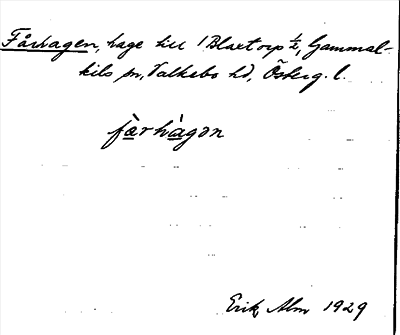 Fårhagen, hage till 1 Blaxtorp ½, Gammal-
kils sn, Valkebo hd, Österg. l.
fårhàgon
Erik Alm 1929